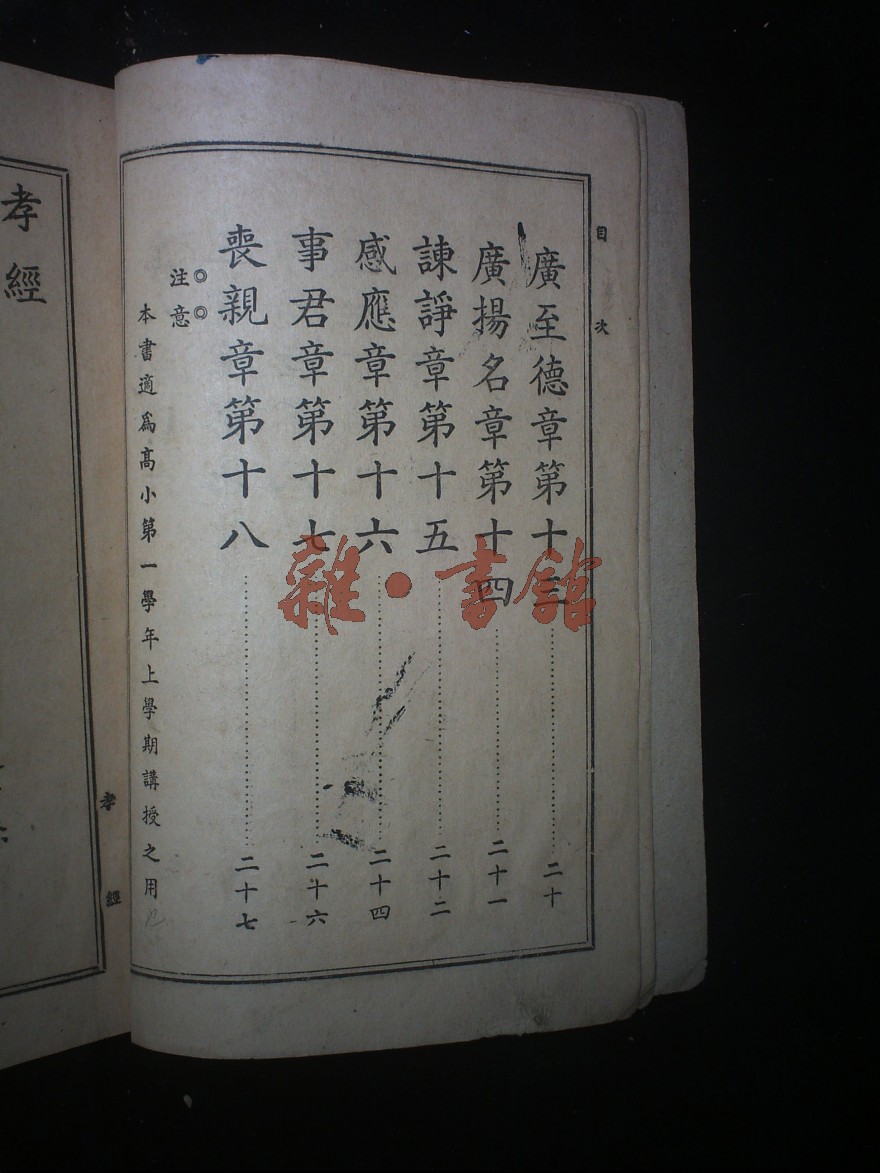 目次
廣至德章第十三 二十
廣揚名章第十四 二十一
諫諍章第十五 二十二
感應章第十六 二十四
事君章第十七 二十六
喪親章第十八 二十七
◎注◎意
本書適爲高小第一學年上學期講授之用
孝經
孝經
雜·書館